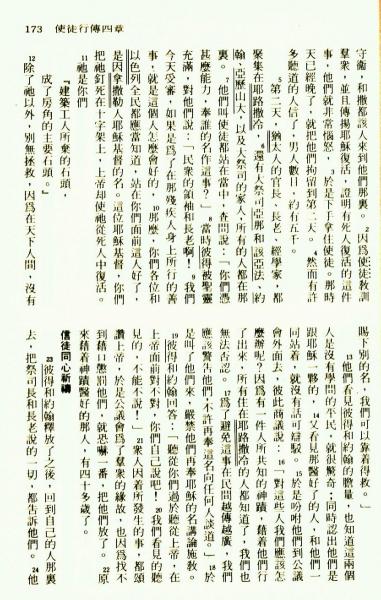 173 使徒行傳四章
守衛，和撒都該人來到他們那裏。2 因為使徒教訓
羣衆，並且傳揚耶穌復活，證明有死人復活的這件
事，他們就非常惱怒，3 於是下手拿住使徒。那時
天已經晚了，就把他們拘留到第二天。4 然而有許
多聽道的人信了，男人數目，約有五千。
5 第二天，猶太人的官長、長老、經學家，都
聚集在耶路撒冷，6 還有大祭司亞那和該亞法、約
翰、亞歷山大，以及大祭司的家人，所有的人都在那
裏。7 他們叫使徒都站在當中，查問說：「你們憑
甚麼能力，奉誰的名作這事？」8 當時彼得被聖靈
充滿，對他們說：「民衆的領袖和長老啊！9 我們
今天受審，如果是為了在那殘疾人身上所行的善
事，就是這個人怎麼會好的，10 那麼，你們各位和
以色列全民都應當知道，站在你們面前這人好了，
是因拿撒勒人耶穌基督的名。這位耶穌基督，你們
把祂釘死在十字架上，上帝卻使祂從死人中復活。
11 祂是你們
『建築工人所棄的石頭，
成了房角的主要石頭。』
12 除了祂以外，別無拯救，因為在天下人間，沒有
賜下別的名，我們可以靠着得救。」
13 他們看見彼得和約翰的膽量，也知道這兩個
人是沒有學問的平民，就很驚奇；同時認出他們是
跟耶穌一夥的，14 又看見那醫好了的人，和他們一
同站着，就沒有話可辯駁。15 於是吩咐他們到公議
會外面去，彼此商議說：16 「對這些人我們應該怎
麼辦呢？因為有一件人所共知的神蹟，藉着他們行
了出來，所有住在耶路撒冷的人都知道了，我們也
無法否認。17 為了避免這事在民間越傳越廣，我們
應該警告他們，不許再奉這名向任何人談道。」18 於
是叫了他們來，嚴禁他們再奉耶穌的名講論施教。
19 彼得和約翰回答：「聽從你們過於聽從上帝，在
上帝面前對不對，你們自己說吧！20 我們看見的聽
見的，不能不說！」21 衆人因着所發生的事，都頌
讚上帝，於是公議會為了羣衆的緣故，也因為找不
到藉口懲罰他們，就恐嚇一番，把他們放了。22 原
來藉着神蹟醫好的那人，有四十多歲了。
信徒同心祈禱
23 彼得和約翰釋放了之後，回到自己的人那裏
去，把祭司長和長老說的一切，都告訴他們。24 他